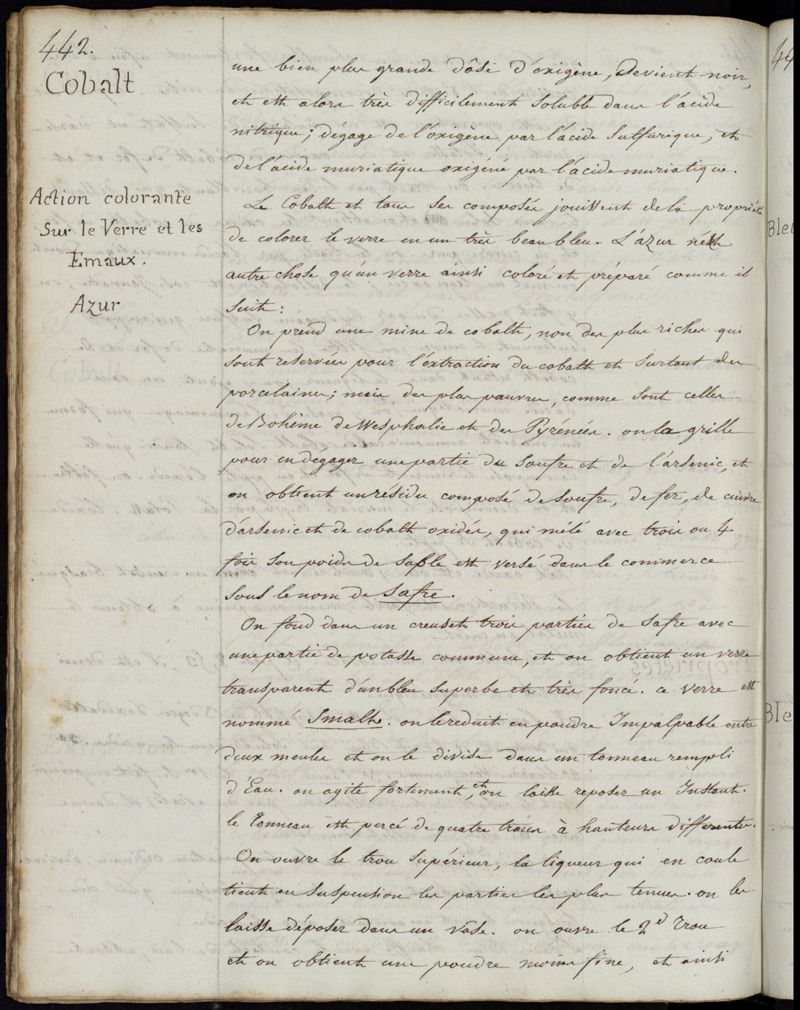 442.
Cobalt
Action colorante
Sur le Verre et les
Emaux.
Azur
une bien plus grande dôse d'oxigène, devient noir,
et est alors très difficilement soluble dans l'acide
nitrique; dégage de l'oxigène par l'acide Sulfurique, et
de l'acide muriatique oxigéné par l'acide muriatique.
Le Cobalt et tous ses composés jouissent de la propriété
de colorer le verre en un très beau bleu. L'azur n'est
autre chose qu'un verre ainsi coloré et préparé comme il
suit:
On prend une mine de cobalt, non des plus riches qui
sont reservées pour l'extraction du cobalt et surtout des
porcelaines; mais des plus pauvres, comme sont celles
de Bohème de Wesphalie et des Pyrénées. on la grille
pour en degager une partie du Soufre et de l'arsenic, et
on obtient un résidu composé de soufre, de fer, de cuivre
d'arsenic et de cobalt oxidés, qui mêlé avec trois ou 4
fois son poids de sable est versé dans le commerce
sous le nom de Safre.
On fond dans un creuset trois parties de Safre avec
une partie de potasse commune, et on obtient un verre
transparent d'un bleu superbe et très foncé. ce verre est
nommé Smalt. on le reduit en poudre Impalpable entre
deux meules et on le divise dans un tonneau rempli
d'Eau. on agite fortement, et on laisse reposer un Instant.
le Tonneau est percé de quatre trous à hauteurs differentes.
On ouvre le trou supérieur, la liqueur qui en coule
tient en suspension les parties les plus tenues. on les
laisse déposer dans un vase. on ouvre le 2d Trou
et on obtient une poudre moins fine, et ainsi
44
Bleu
Ble